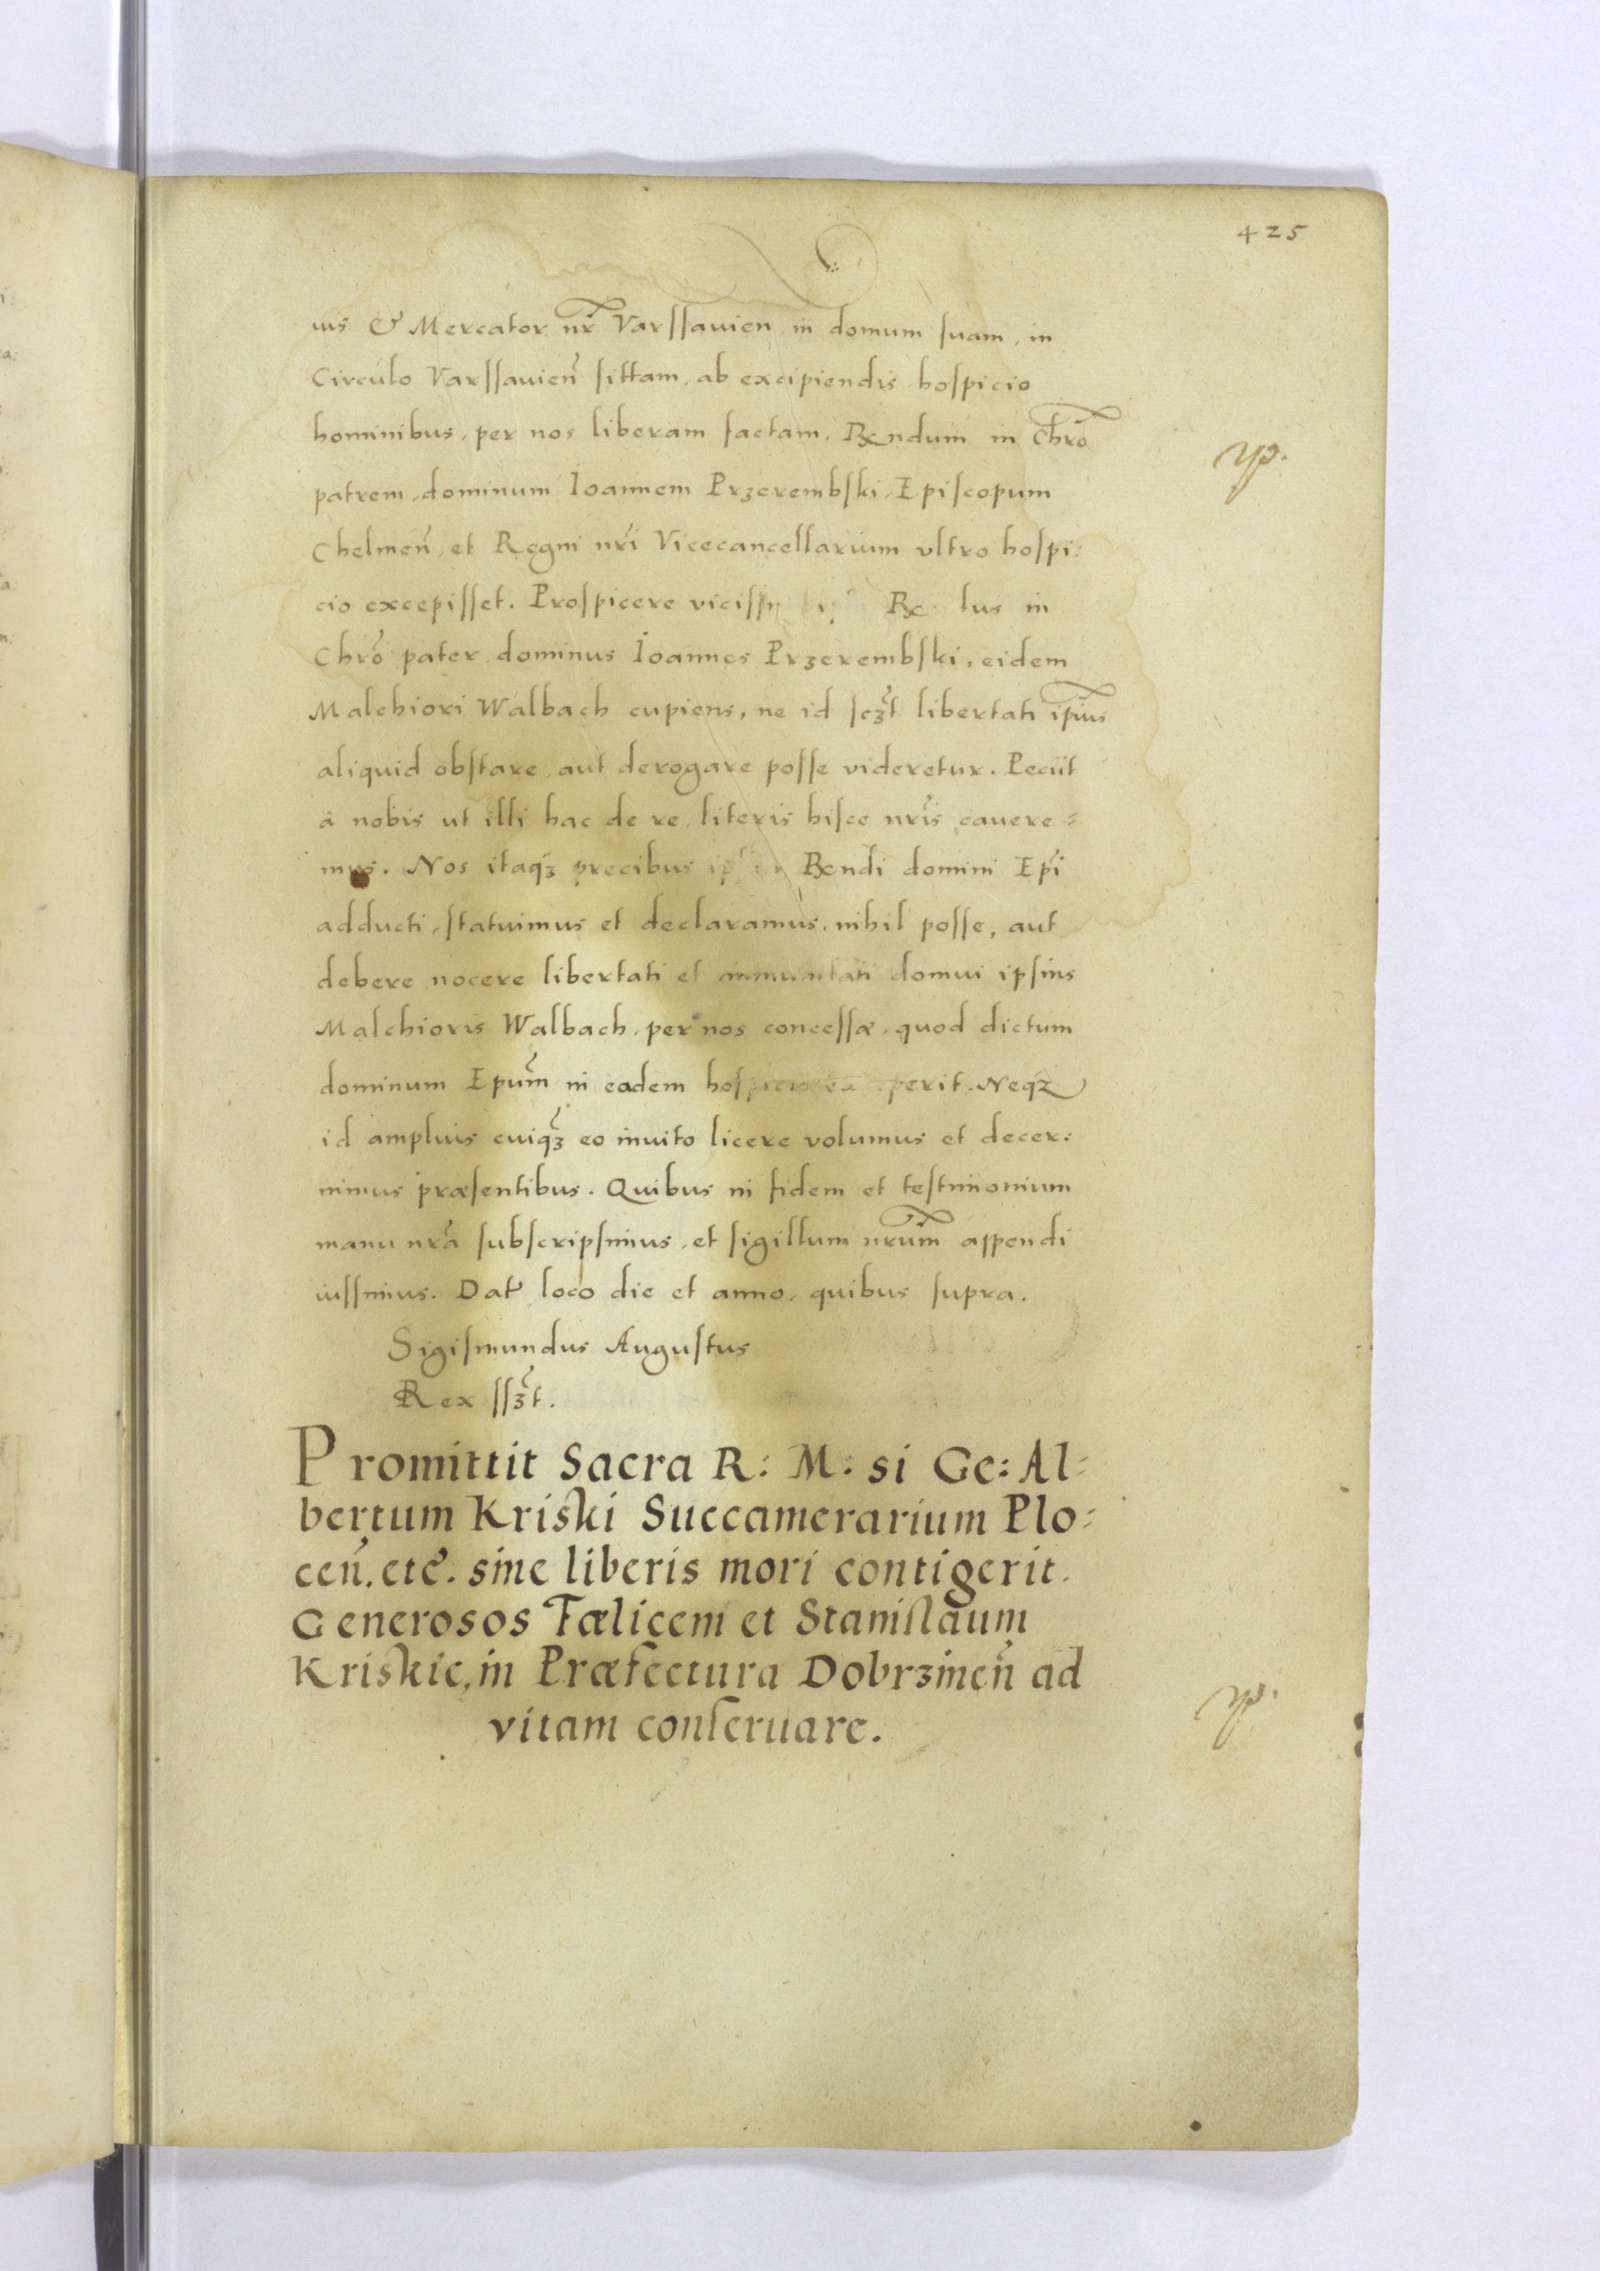 425
uis & Mercator nr̃ Varssauien in domum suam, in
Circulo Varssavień sittam, ab excipiendis hospicio
hominibus, per nos liberam factam, Rendum in Chrō
patrem, dominum Ioannem Przerembski, Episcopum
Chelmeń, et Regni nrĩ Vicecancellarium vltro hospi:
cio excepisset. Prospicere in
Chrō pater, dominus Ioannes Przerembski, eidem
Malchiori Walbach cupiens, ne id libertati ipĩus
aliquid obstare, aut derogare posse videretur. Peciit
à nobis ut illi hac de re, literis hisce nrĩs cauere=
mus. Nos itaqʒ precibus Rendi domini Epĩ
adducti, statuimus et declaramus, nihil posse, aut
debere nocere libertati et immunitati domui ipsius
Malchioris Walbach, per nos concessæ, quod dictum
dominum Epum̃ in eadem Neqʒ
id amplius cuiqʒ eo inuito licere volumus et decer:
nimus præsentibus. Quibus in fidem et testimonium
manu nrã subscripsimus, et sigillum nrum̃ appendi
iussimus. Dat̃ loco die et anno, quibus supra.
Sigismundus Augustus
Rex ssʒt.
Promittit Sacra R: M: si Ge: Al=
bertum Kriski Succamerarium Plo=
ceń. etc̃. sine liberis mori contigerit.
Generosos Fælicem et Stanislaum
Kriskie, in Præfectura Dobrzineń ad
vitam conseruare.